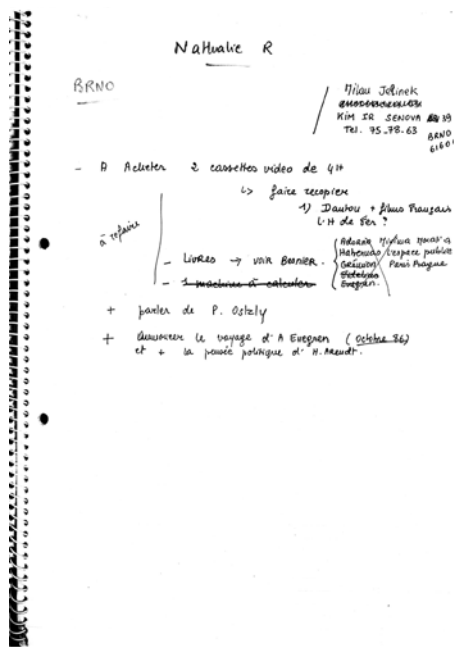 Nathalie R
BRNO
Milan Jelinek
KIM IR SENOVA 39
Tel. 75.78.63 BRNO
6160
- A Acheter 2 cassettes video de 4H
↳ faire recopier
1) Danton + films Français
L'H de Fer ?
à refaire
- Livres → voir Besnier.
Adorno Minima Moralia
Habermas L'espace public
Grémion Paris Prague
Evegren.
- 1 machine à calculer
+ parler de P. Ostzly
+ Annoncer le voyage d'A Evegren (Octobre 86)
et + la pensée politique d'H. Arendt.